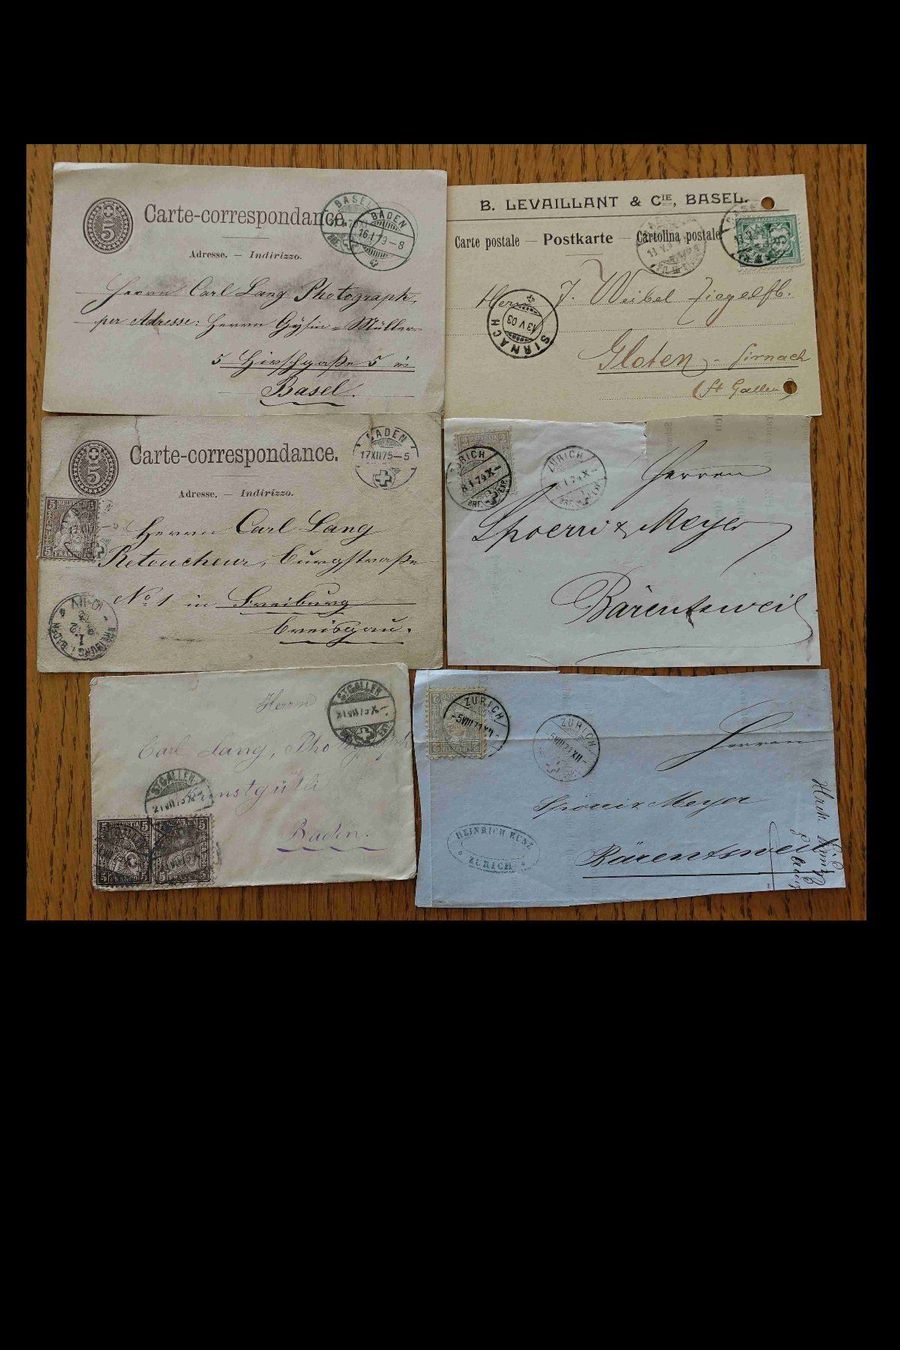 5
Carte-correspondance.
Adresse. — Indirizzo.
BASEL
BADEN
16.I.73-8
Herrn Carl Lang Photograph,
per Adresse: Herrn Gysin & Müller
5 Hirschgasse 5 in
Basel.
B. LEVAILLANT & CIE, BASEL.
Carte postale — Postkarte — Cartolina postale
Herrn J. Weibel Ziegelfb.
SIRNACH
13 V 03
Gloten - Sirnach
(St Gallen)
5
Carte-correspondance.
Adresse. — Indirizzo.
BADEN
17XII75-5
5 5
Herrn Carl Lang
Retoucheur, Burgstraße
No. 1 in Freiburg
Breisgau.
ZÜRICH
ZÜRICH
Herren
Spoerri & Meyer
Bärentsweil
ST.GALLEN
Herrn
Carl Lang, Photograph
ST.GALLEN
Baden.
5 5 5 5
ZÜRICH
-5VIII71XII-
ZÜRICH
-5VIII71XII-
Herren
Spoerri Meyer
Bärentsweil
HEINRICH KUNZ
ZÜRICH